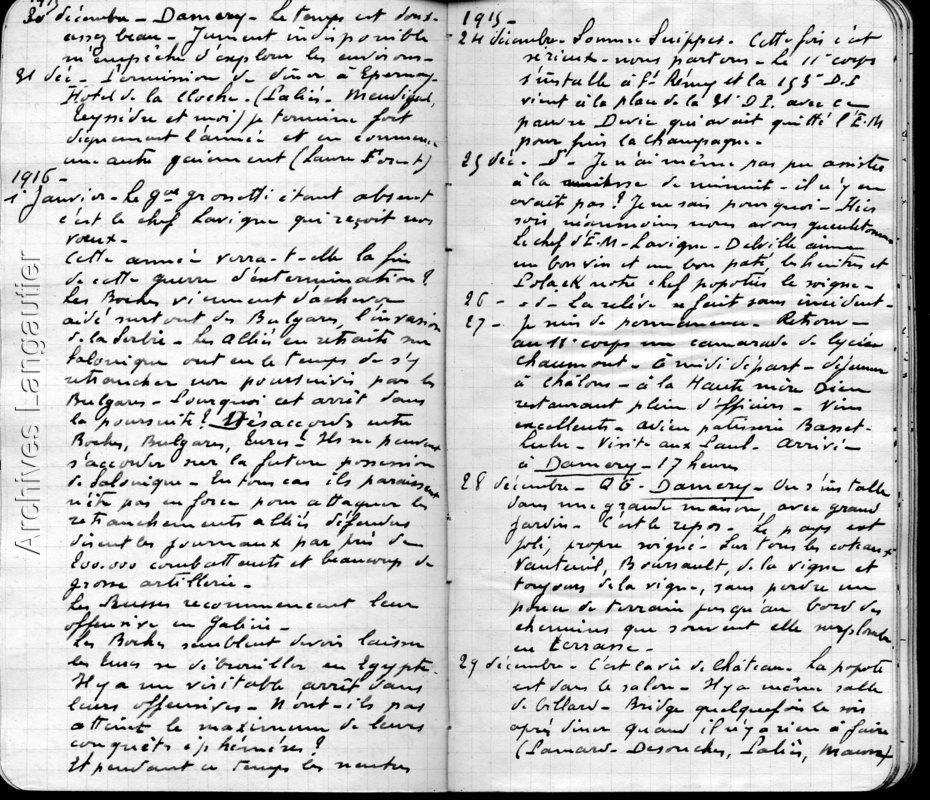 1915
30 décembre - Damery - Le temps est doux -
assez beau - Jument indisponible
m'empêche d'explorer les environs -
31 déc - Permission de dîner à Epernay
Hotel de la Cloche - (Paliès - Mendigal,
Teyssèdre et moi) je termine fort
dignement l'année et en commence
une autre gaiement
1916 -
1 Janvier - Le Gal Grossetti étant absent
c'est le chef Lavigne qui reçoit nos
vœux -
Cette année verra-t-elle la fin
de cette guerre d'extermination ?
Les Boches viennent d'achever
aidé surtout des Bulgares, l'invasion
de la Serbie - Les Alliés en retraite sur
Salonique ont eu le temps de s'y
retrancher non poursuivis par les
Bulgares - Pourquoi cet arrêt dans
la poursuite ? Désaccords entre
Boches, Bulgares, Turcs ? Ils ne peuvent
s'accorder sur la future possession
de Salonique - En tous cas ils paraissent
n'être pas en force pour attaquer les
retranchements alliés défendus
disent les journaux par près de
200.000 combattants et beaucoup de
grosse artillerie -
Les Russes recommencent leur
offensive en Galicie -
Les Boches semblent devoir laisser
les Turcs se débrouiller en Egypte -
Il y a un véritable arrêt dans
leurs offensives - N'ont-ils pas
atteint le maximum de leurs
conquêts éphémères ?
Et pendant ce temps les neutres
1915 -
24 décembre - Somme Suippes - Cette fois c'est
sérieux - nous partons - Le 11e corps
s'installe à St Rémy et la 153e D.I
vient à la place de la 21e D.I. avec ce
pauvre Devic qui avait quitté l'E.M
pour fuir la Champagne -
25 déc - d° - Je n'ai même pas pu assister
à la messe de minuit - il n'y en
avait pas ? Je ne sais pourquoi - Hier
soir néanmoins nous avons gueuletonné
Le chef d'E.M - Lavigne - Delville aime
un bon vin et un bon paté, les huitres et
Polack notre chef popotier le soigne -
26 - d - La relève se fait sans incident -
27 - Je suis de permanence - Retour -
au 11e corps un camarade de lycée
Chaumont - à midi départ - déjeuner
à Châlons - à la Haute mère Dieu
restaurant plein d'officiers - Vins
excellents - adieu patisserie Basset-
Visite aux Paul - Arrivée
à Damery - 17 heures
28 décembre - QG - Damery - On s'installe
dans une grande maison, avec grand
jardin - C'est le repos - Le pays est
joli, propre soigné - Sur tous les coteaux
Vauteuil, Boursault, de la vigne et
toujours de la vigne, sans perdre un
pouce de terrain jusqu'au bord des
chemins que souvent elle surplombe
en terrasse -
29 décembre - C'est la vie de château - La popote
est dans le salon - Il y a même salle
de billard - Bridge quelquefois le soir
après diner quand il n'y a rien à faire
(Lamard - Desouches, Paliès,
Archives Langautier